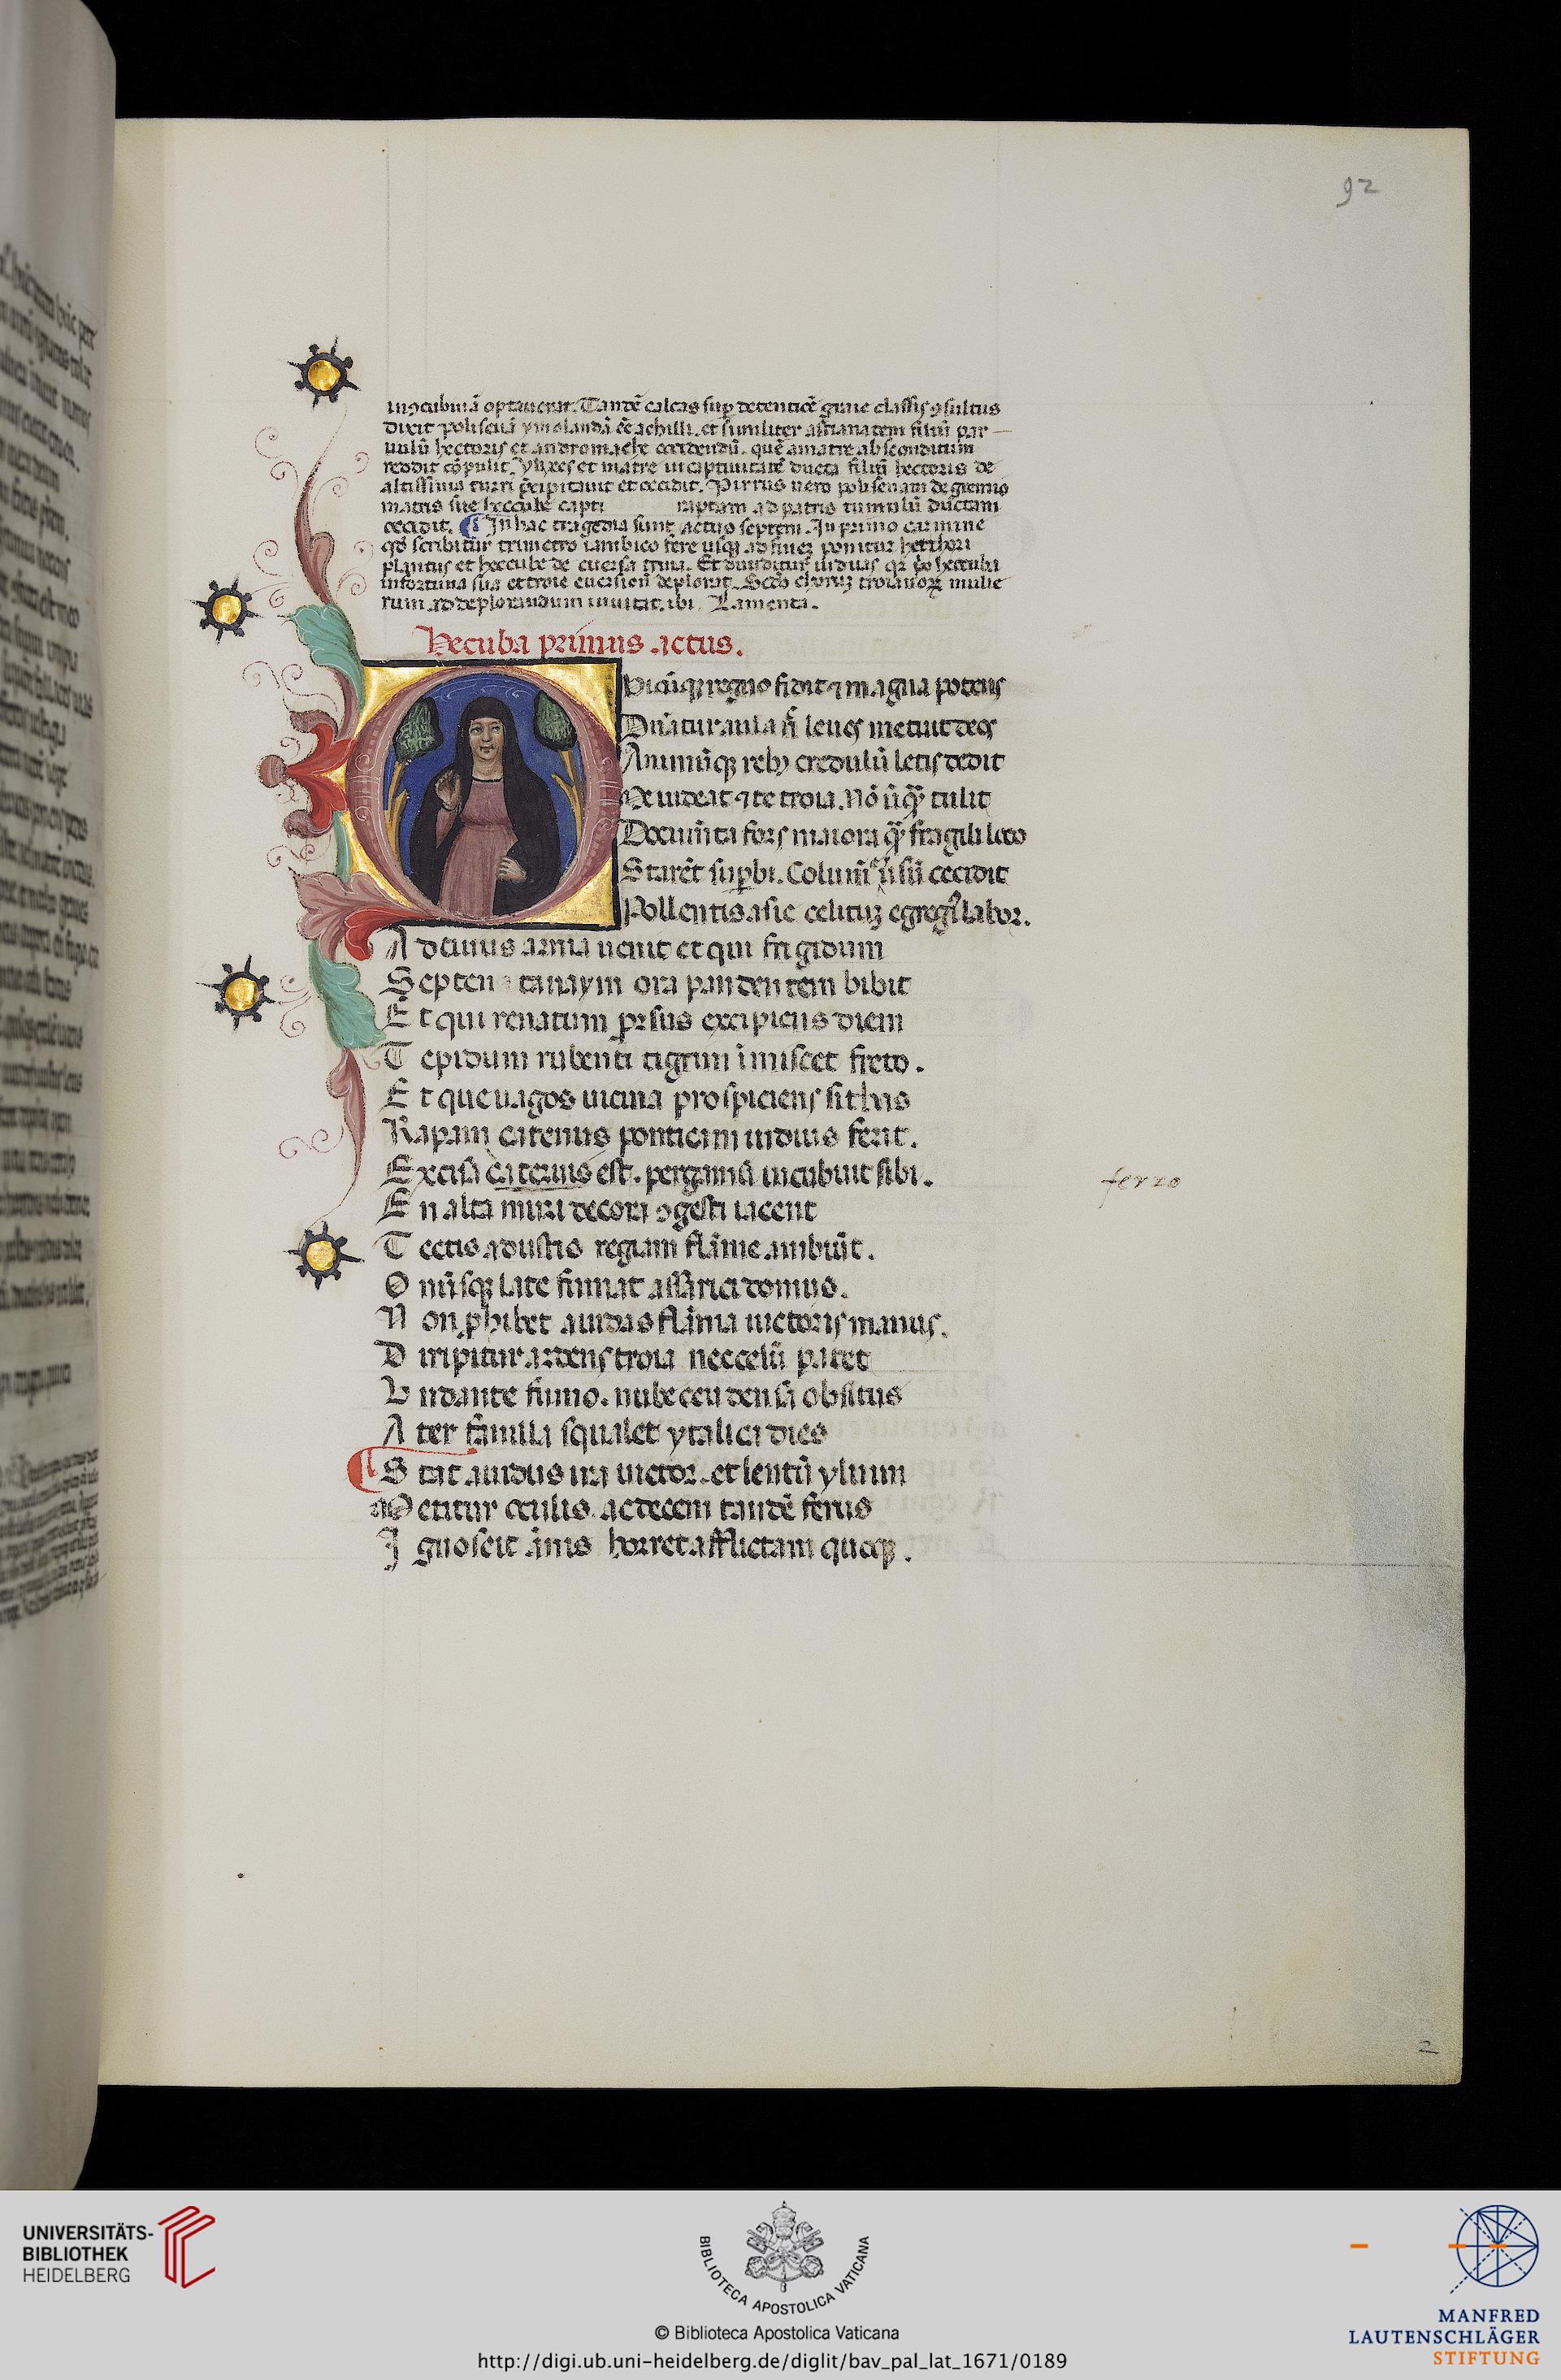 92
in ɔcubinā optauerat. Tandē calcas sup detentiōe graue classis ɔsultus
dixit polisenā ymolandā eē achilli. et similiter astianatem filiū par
uulū hectoris et andromache occidendū. quē a matre absconditum
reddit cōpulit. Ylixes et matre in captiuitatē ducta filiū hectoris de
altissima turri p̄cipitauit et occidit. Pirrus uero polisenam de gremio
matris sue heccube capti raptam ad patris tumulū ductam
occidit. In hac tragedia sunt actus septem. In primo carmine
qd scribitur trimetro iambico fere usq ad finez ponitur
plantus et heccube de euersa troia. Et diuiditur in duas qr po heccuba
infortunia sua et troie euersionē deplorat. Scdo choruz troianoꝝ mulie
rum ad deplorandum inuitat. ibi. Lamenta.
Hecuba primus actus.
Quicūqꝫ regno fidit ⁊ magna potens
Dn̄atur aula n̄ leues metuit deos
Animūqꝫ rebꝫ credulū letis dedit
Me uideat ⁊ te troia. Nō ūqꝫ tulit
Documēta fors maiora qꝫ fragili loco
Starēt supbi. Colum̄ ū̄sū cecidit
Pollentis asie celituꝫ egregiꝰ labor.
A d cuius arma uenit et qui frigidum
S epten tanaym ora pandentem bibit
E t qui renatum prsus excipiens diem
T epidum rubenti tigrim īmiscet freto.
E t que uagos uicina prospiciens sithas
R apam cateruis ponticam uiduis ferit.
E xcisa cateruis est. pergamū incubuit sibi.
E n alta muri decora ɔgesti iacent
T ectis adustis regiam flāme ambiūt.
O mīsqꝫ late fumat assarici domus.
N on phibet auidas flāma uictoris manus.
D iripitur ardens troia nec celū patet
U ndante fumo. nube ceu densa obsitus
A ter fauilla squalet ytalica dies
S tat auidus ira uictor. et lentū ylium
M etitur oculis. ac decem tandē ferus
I gnoscit ānis horret afflictam quoqꝫ.
ferro
2
UNIVERSITÄTS-
BIBLIOTHEK
HEIDELBERG
BIBLIOTECA APOSTOLICA VATICANA
© Biblioteca Apostolica Vaticana
http://digi.ub.uni-heidelberg.de/diglit/bav_pal_lat_1671/0189
MANFRED
LAUTENSCHLÄGER
STIFTUNG